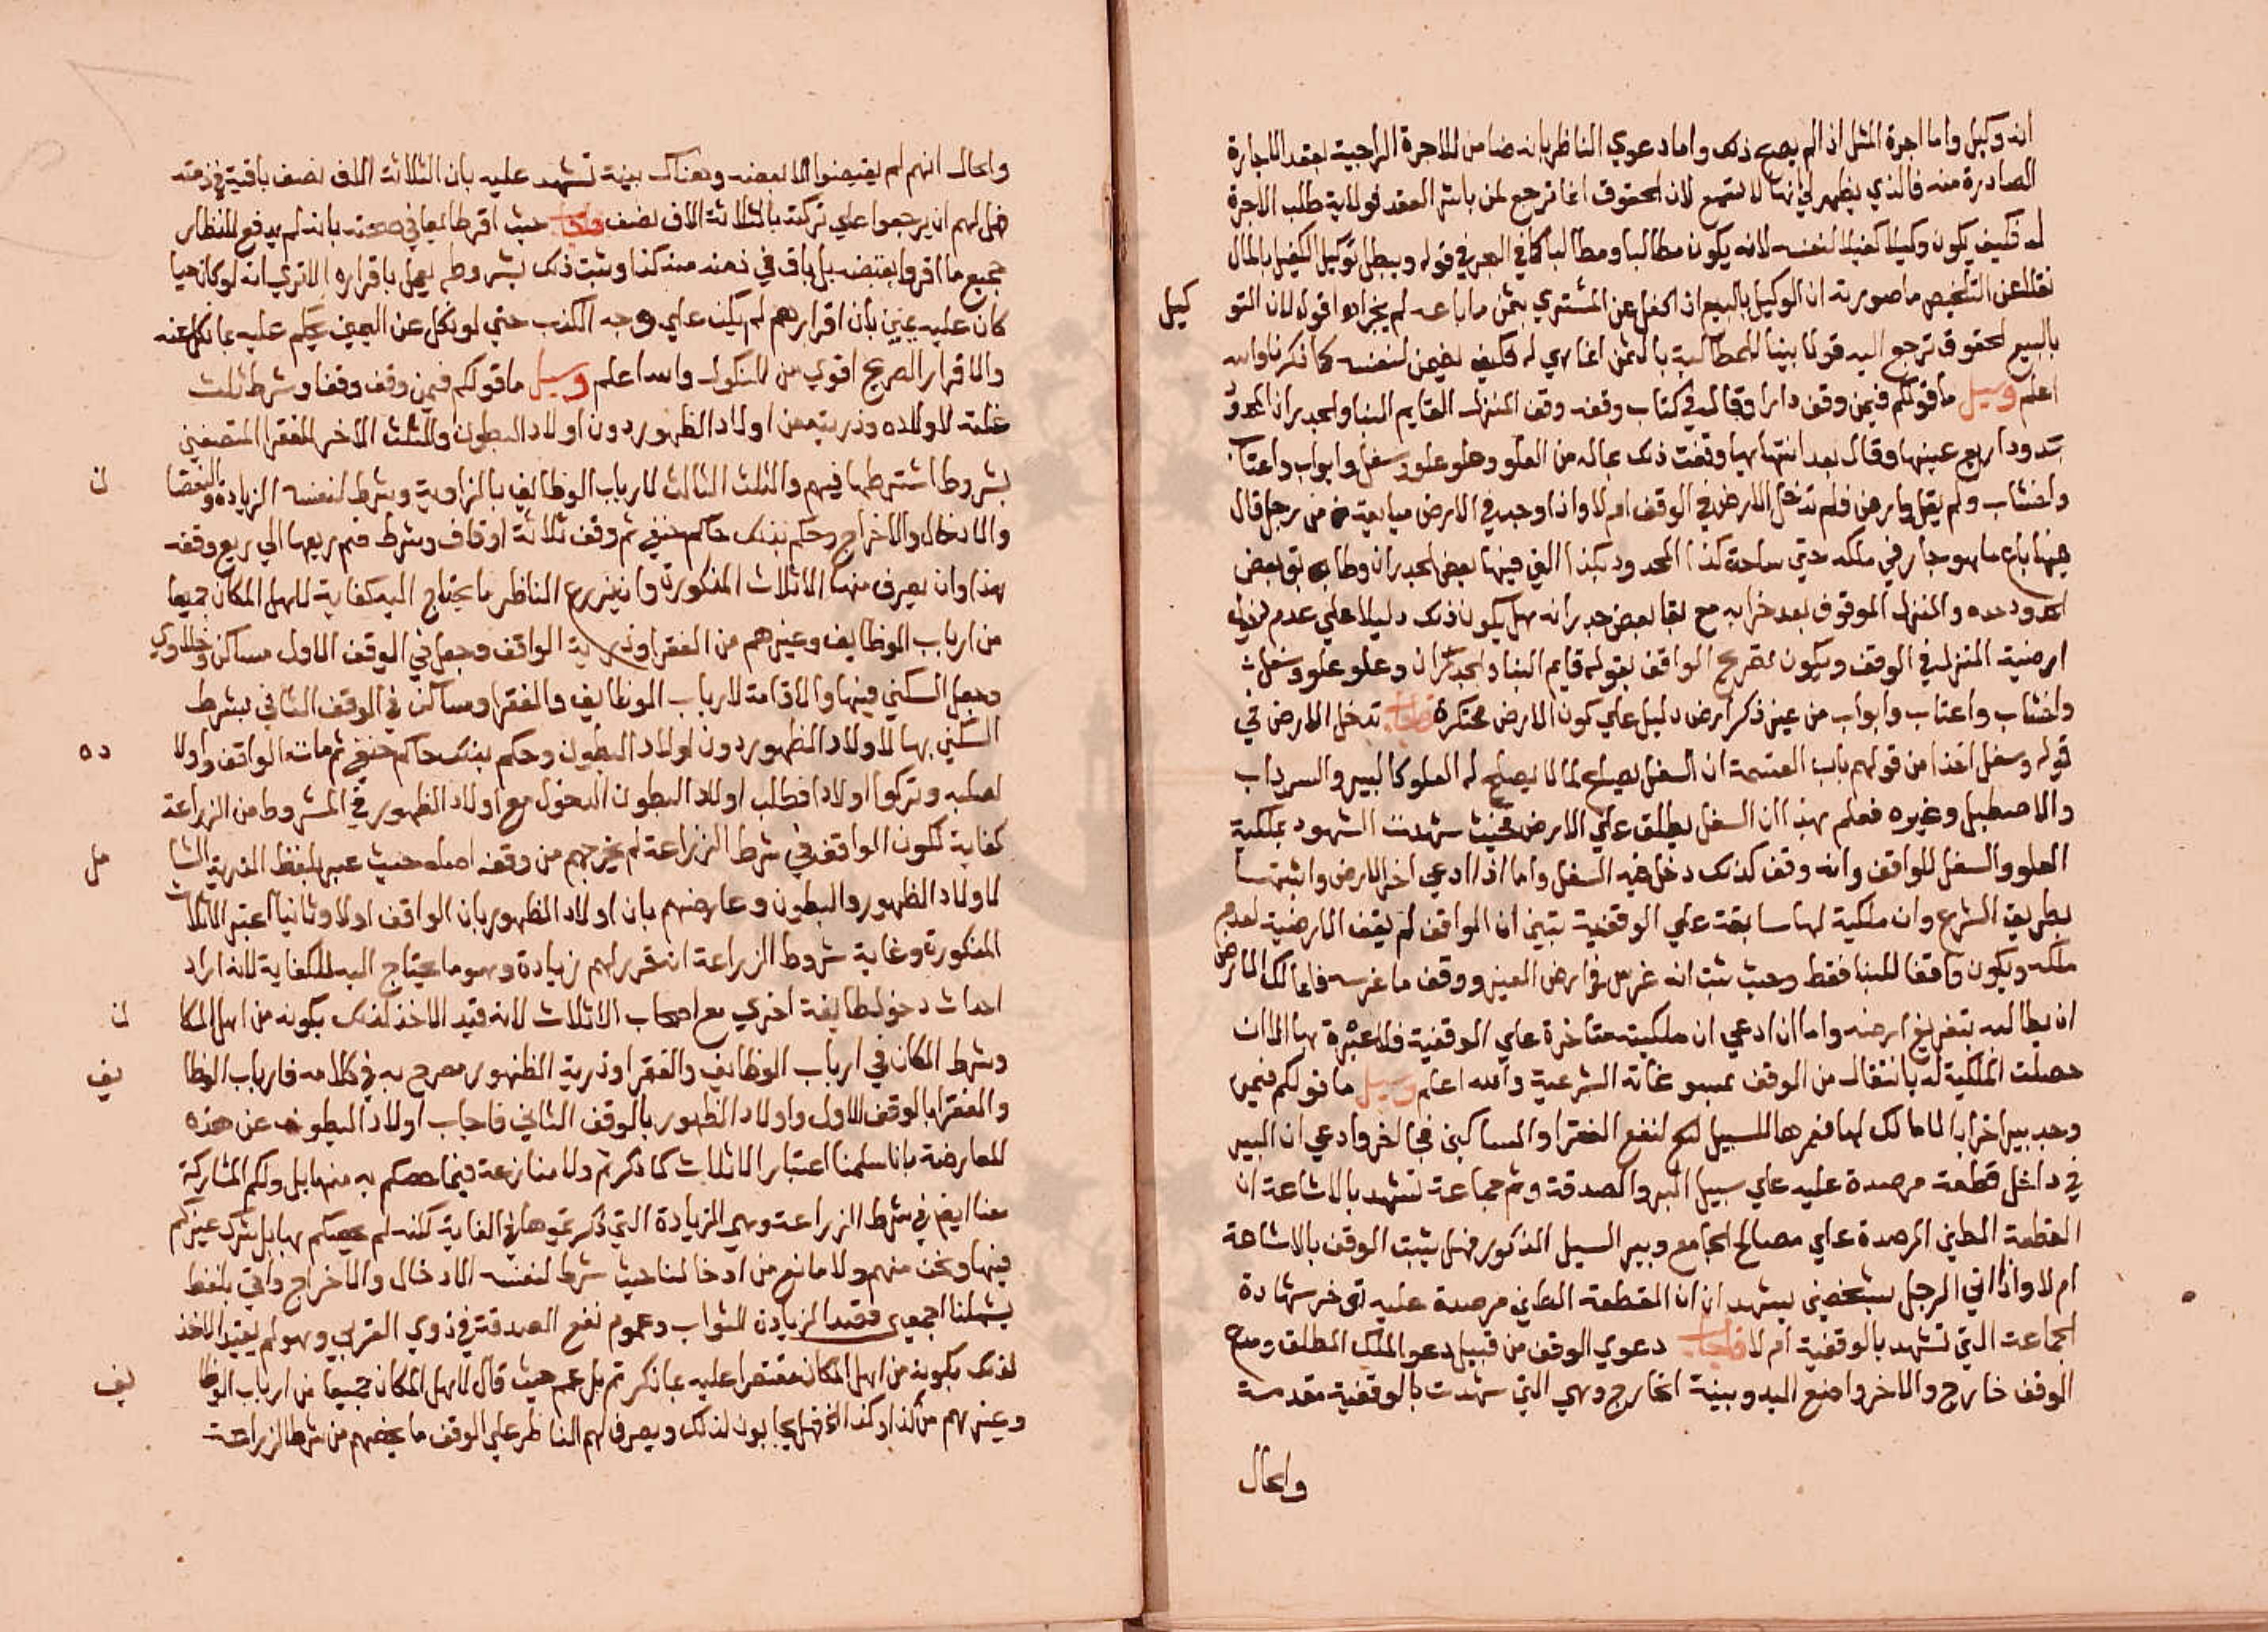 انه وكيل واما اجرة المثل اذ لم يصح ذلك واما دعوي الناظر بانه ضامن للاجرة الواجبة بعقد الاجارة
الصادرة منه فالذي يظهر لي انها لا تسمع لان الحقوق انما ترجع لمن باشر العقد فولاية طلب الاجرة
له فكيف يكون وكيلا كفيلا لنفسه لانه يكون مطالبا ومطالبا كما في البحر في قوله ويبطل توكيل الكفيل بالمال
نقلا عن التلخيص ما صورته ان الوكيل بالبيع اذا كفل عن المشتري بثمن ما باعه لم يجز اه اقول لان التو
كيل
بالبيع لحقوق ترجع اليه قولا بينا للمطالبة بالثمن انما هي له فكيف يضمن لنفسه كما ذكرنا والله
اعلم وسيل ما قولكم فيمن وقف دارا وقال في كتاب وقفه وقف المنزل القايم البنا والجدران المحدو
د بحدود اربع عينها وقال بعد انتهايها وقفت ذلك بماله من العلو وعلو علو وسفل وابواب واعتاب
واخشاب ولم يقل وارض فلم تدخل الارض في الوقف ام لا واذا وجد في الارض مبايعة من رجل قال
فيها باع ما هو جار في ملكه حتي ساحة كذا المحدود بكذا التي فيها بعض الجدران وطابق بعض
الحدود حده والمنزل الموقوف بعد خرابه مع بقا بعض جدرانه هل يكون ذلك دليلا علي عدم دخول
ارضية المنزل في الوقف ويكون تصريح الواقف بقوله قايم البنا والجدران وعلو علو وسفل
واخشاب واعتاب وابواب من غير ذكر ارض دليل علي كون الارض محتكرة فاجاب تدخل الارض في
قوله وسفل اخذا من قولهم باب القسمة ان السفل يصلح لما لا يصلح له العلو كالبير والسرداب
والاصطبل وغيره فعلم بهذا ان السفل يطلق علي الارض فحيث شهدت الشهود بملكية
العلو والسفل للواقف وانه وقف كذلك دخل فيه السفل واما اذا ادعي اخر الارض واثبتها
بطريق الشرع وان ملكيته لها سابقة علي الوقفية تبين ان الواقف لم يقف الارضية لعدم
ملكه ويكون واقفا للبنا فقط وحيث ثبت انه غرس في ارض الغير ووقف ما غرسه فلمالك الارض
ان يطالبه بتفريغ ارضه واما ان ادعي ان ملكيته متاخرة علي الوقفية فلا عبرة بها الا ان
حصلت الملكية له بانتقال من الوقف بمسوغاته الشرعية والله اعلم وسيل ما قولكم فيمن
وجد بيرا خرابا لا مالك لها فعمرها للسبيل لنفع الفقرا والمساكين فجا اخر وادعي ان البير
في داخل قطعة مرصدة عليه علي سبيل البر والصدقة وثم جماعة تشهد بالاشاعة ان
القطعة الطين المرصدة علي مصالح الجامع وبير السبيل المذكور فهل يثبت الوقف بالاشاعة
ام لا واذا اتي الرجل بشخصين يشهدان ان القطعة الطين مرصدة عليه تؤخر شهادة
الجماعة التي تشهد بالوقفية ام لا فاجاب دعوي الوقف من قبيل دعو الملك المطلق ومدعي
الوقف خارج والاخر واضع اليد وبينة الخارج وهي التي شهدت بالوقفية مقدمة
والحال
والحال انهم لم يقبضوا الا بعضه وهناك بينة تشهد عليه بان الثلاثة الاف نصف باقية في ذمته
فهل لهم ان يرجعوا علي تركته بالثلاثة الاف نصف فاجاب حيث اقر طايعا في صحته بانه لم يدفع للنظار
جميع ما اقروا بقبضه بل باق في ذمته منه كذا وثبت ذلك بشروطه يعمل باقراره الا تري انه لو كان حيا
كان عليه يمين بان اقرارهم لم يكن علي وجه الكذب حتي لو نكل عن اليمين يحكم عليه بما نكل عنه
والاقرار الصريح اقوي من النكول والله اعلم وسيل ما قولكم فيمن وقف وقفا وشرط ثلث
غلته لاولاده وذريته من اولاد الظهور دون اولاد البطون والثلث الاخر للفقرا المتصفين
بشروط اشترطها فيهم والثلث الثالث لارباب الوظايف بالزاوية وشرط لنفسه الزيادة والنقصا
ن
والادخال والاخراج وحكم بذلك حاكم حنفي ثم وقف ثلاثة اوقاف وشرط ضم ريعها الي ريع وقفه
هذا وان يصرف منها الاثلاث المذكورة وان يزرع الناظر ما يحتاج اليه كفاية لاهل المكان جميعا
من ارباب الوظايف وغيرهم من الفقرا وذرية الواقف وجعل في الوقف الاول مساكن وخلاوي
وجعل السكني فيها والاقامة لارباب الوظايف والفقرا ومساكن في الوقف الثاني بشرط
السكني بها لاولاد الظهور دون اولاد البطون وحكم بذلك حاكم حنفي ثم مات الواقف واولا
ده
لصلبه وتركوا اولادا فطلب اولاد البطون الدخول مع اولاد الظهور في المشروط من الزراعة
كفاية لكون الواقف في شرط الزراعة لم يخرجهم من وقفه اصلا حيث عبر بلفظ الذرية الشا
مل
لاولاد الظهور والبطون وعارضهم بان اولاد الظهور بان الواقف اولا وثانيا اعتبر الاثلاث
المذكورة وغاية شروط الزراعة انه قرر لهم زيادة وهو ما يحتاج اليه للكفاية لانه اراد
احداث دخول طايفة اخري مع اصحاب الاثلاث لانه قيد الاخذ لذلك بكونه من اهل المكا
ن
وشرط المكان في ارباب الوظايف والفقرا وذرية الظهور مصرح به في كلامه فارباب الوظا
يف
والفقرا بالوقف الاول واولاد الظهور بالوقف الثاني فاجاب اولاد البطون عن هذه
المعارضة بانا سلمنا اعتبار الاثلاث كما ذكرتم ولا منازعة فيما خصكم به منها بل ولكم المشاركة
معنا ايضا في شرط الزراعة وهي الزيادة التي ذكرتموها في الغاية لكنه لم يخصكم بها بل شرك غيركم
فيها ونحن منهم ولا مانع من ادخالنا حيث شرط لنفسه الادخال والاخراج واتي بلفظ
يشملنا اجمعين فقصد الزيادة للثواب وعموم نفع الصدقة في ذوي القربي وهو لم يقيد الاخذ
لذلك بكونه من اهل المكان مقتصرا عليه بما ذكرتم بل عمم حيث قال لاهل المكان جميعا من ارباب الوظا
يف
وغيرهم من كذا وكذا الخ فهل يجابون لذلك ويصرف لهم الناظر علي الوقف ما يخصهم من شرط الزراعة